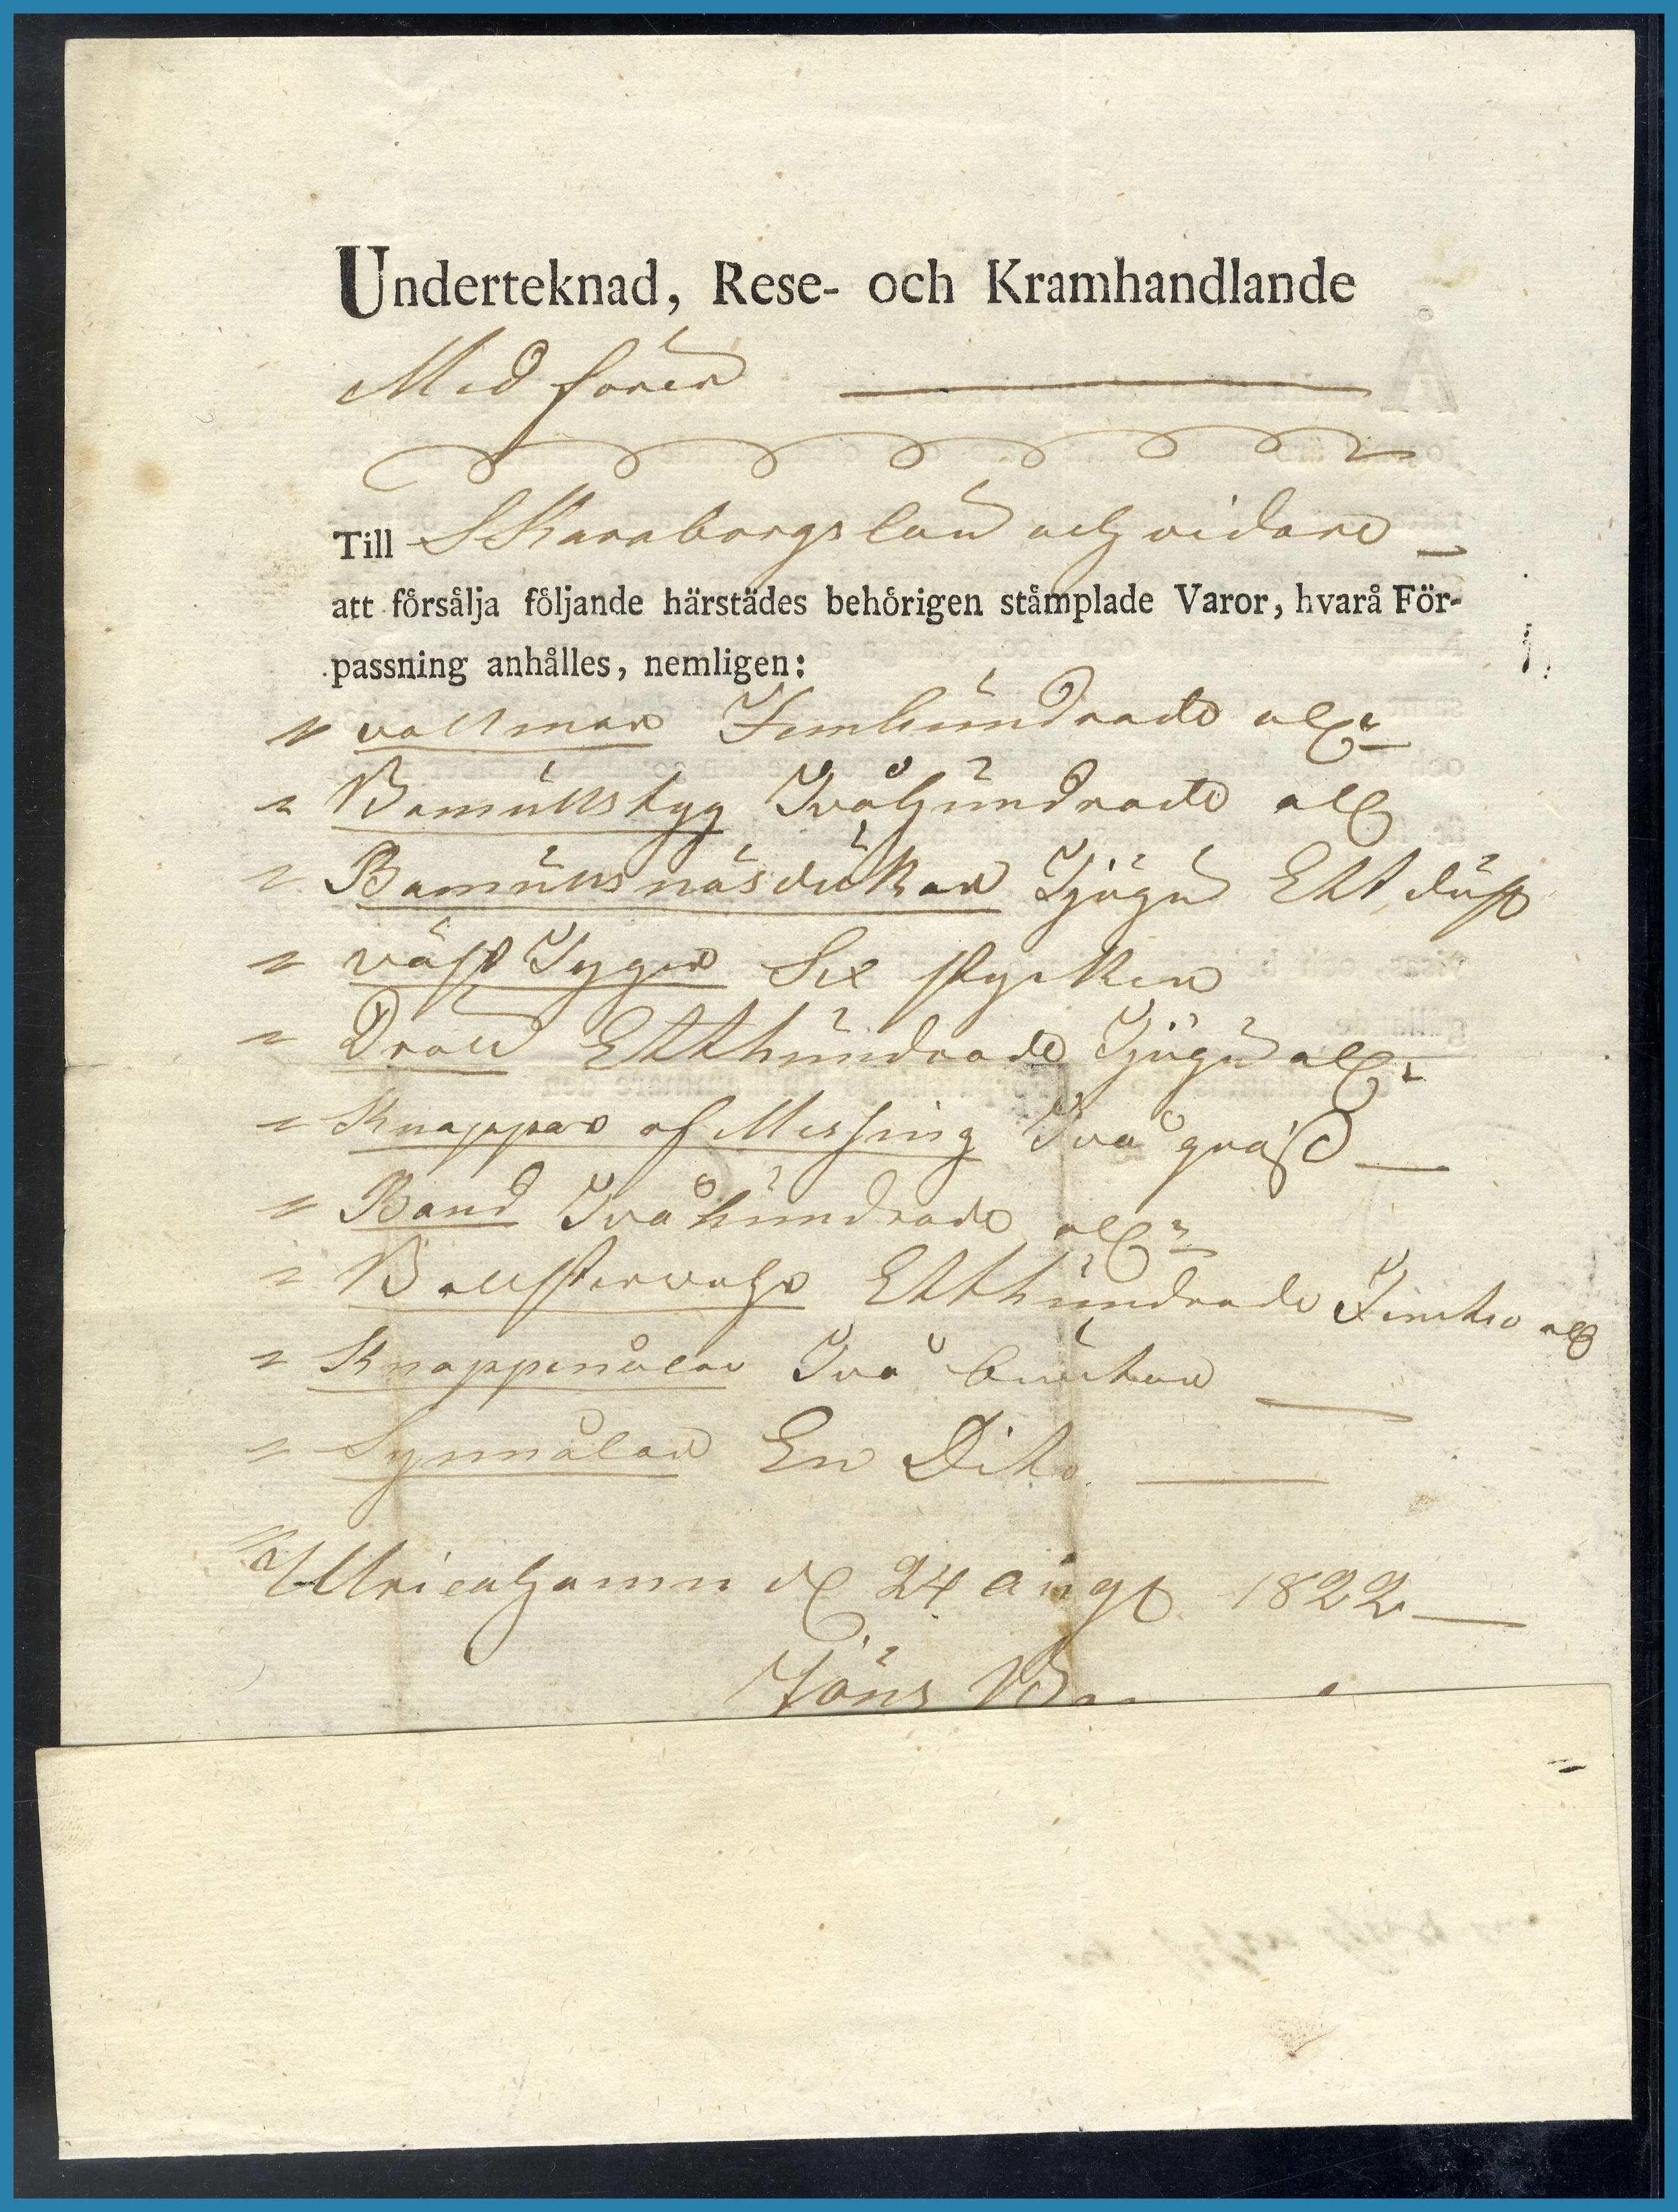 Underteknad, Rese- och Kramhandlande
Medförer
Till Skaraborgs län och vidare
att försälja följande härstädes behörigen stämplade Varor, hvarå För-
passning anhålles, nemligen:
" vallmar Femhundrade aln
" Bomullstyg Tvåhundrade aln
" Bomulls näsdukar Tjugu Ett duss
" väst Tyger Sex stycken
" Drall Etthundrade Tjugu aln
" Knappar af Messing Två gross
" Band Twåhundrade aln
" Bollstervahr Etthundrade Femtio aln
" Knappenålar Två buntar
" Synnålar En Dito
Ulricahamn d 24 Augt 1822
Jöns